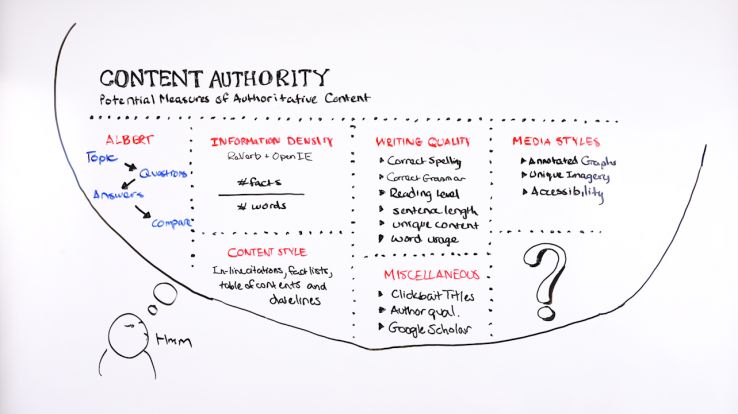 CONTENT AUTHORITY
Potential Measures of Authoritative Content
ALBERT
Topic
Questions
Answers
Compare
INFORMATION DENSITY
ReVerb + OpenIE
# facts
# words
WRITING QUALITY
Correct Spelling
Correct Grammar
Reading level
sentence length
unique content
word usage
MEDIA STYLES
Annotated Graphs
Unique Imagery
Accessibility
CONTENT STYLE
In-line citations, fact lists,
table of contents and
datelines
MISCELLANEOUS
Clickbait Titles
Author qual.
Google Scholar
?
Hmm